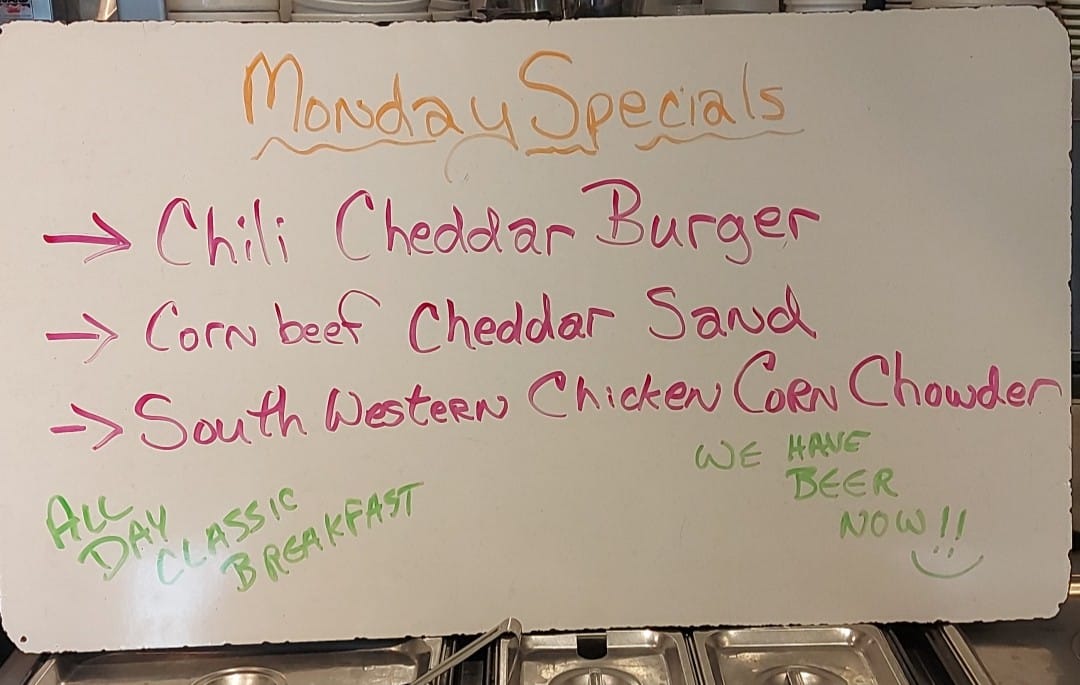 Monday Specials
→ Chili Cheddar Burger
→ Corn beef Cheddar Sand
→ South Western Chicken Corn Chowder
ALL
DAY
CLASSIC
BREAKFAST
WE HAVE
BEER
NOW!!